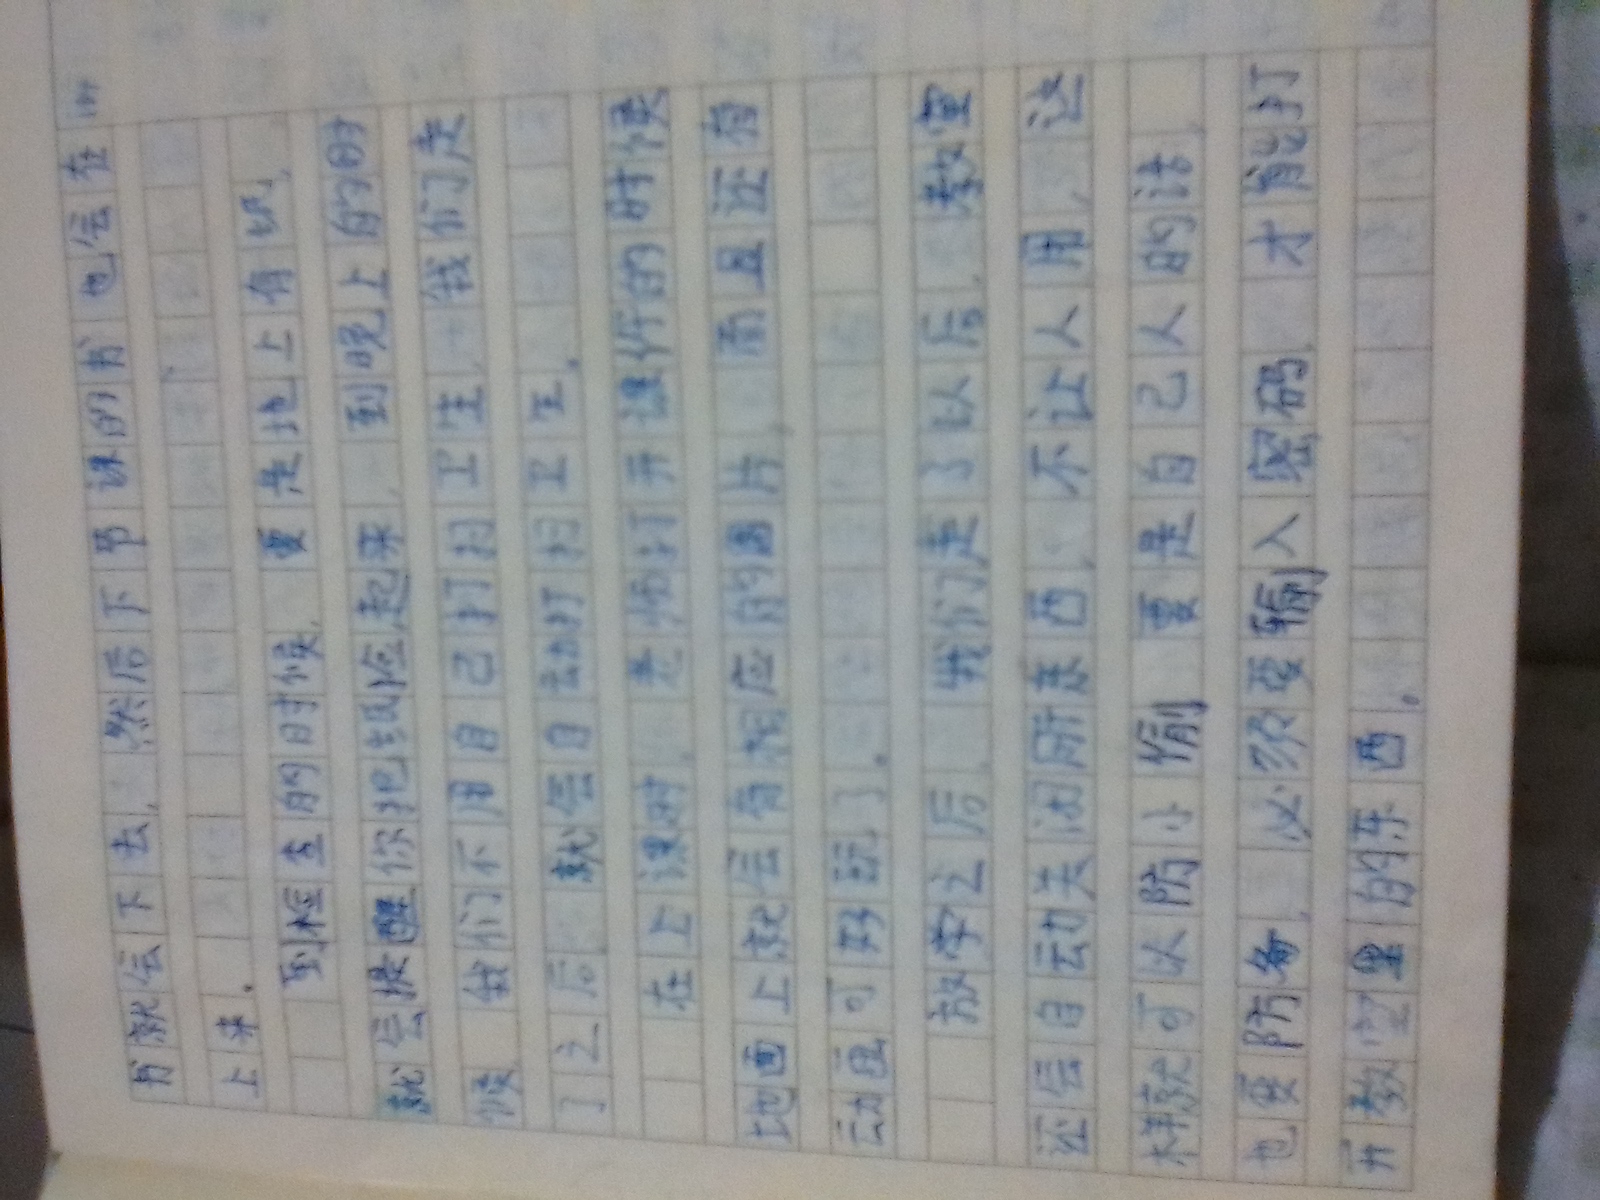 书就会下去,然后下节课的书也会在
上来。
到检查的时候,要是地上有纸,
就会提醒你把纸捡起来,到晚上的时
候我们不用自己打扫卫生,我们走
了之后就会自动打扫卫生。
在上课时,老师打开课件的时候
地面上就会有相应的图片,而且还有
动画可好玩了。
放学之后,我们走了以后,教室
还会自动关闭所东西,不让人用,这
样就可以防小偷要是自己人的话,
也要防备,必须要输入密码,才能打
开教室里的东西。